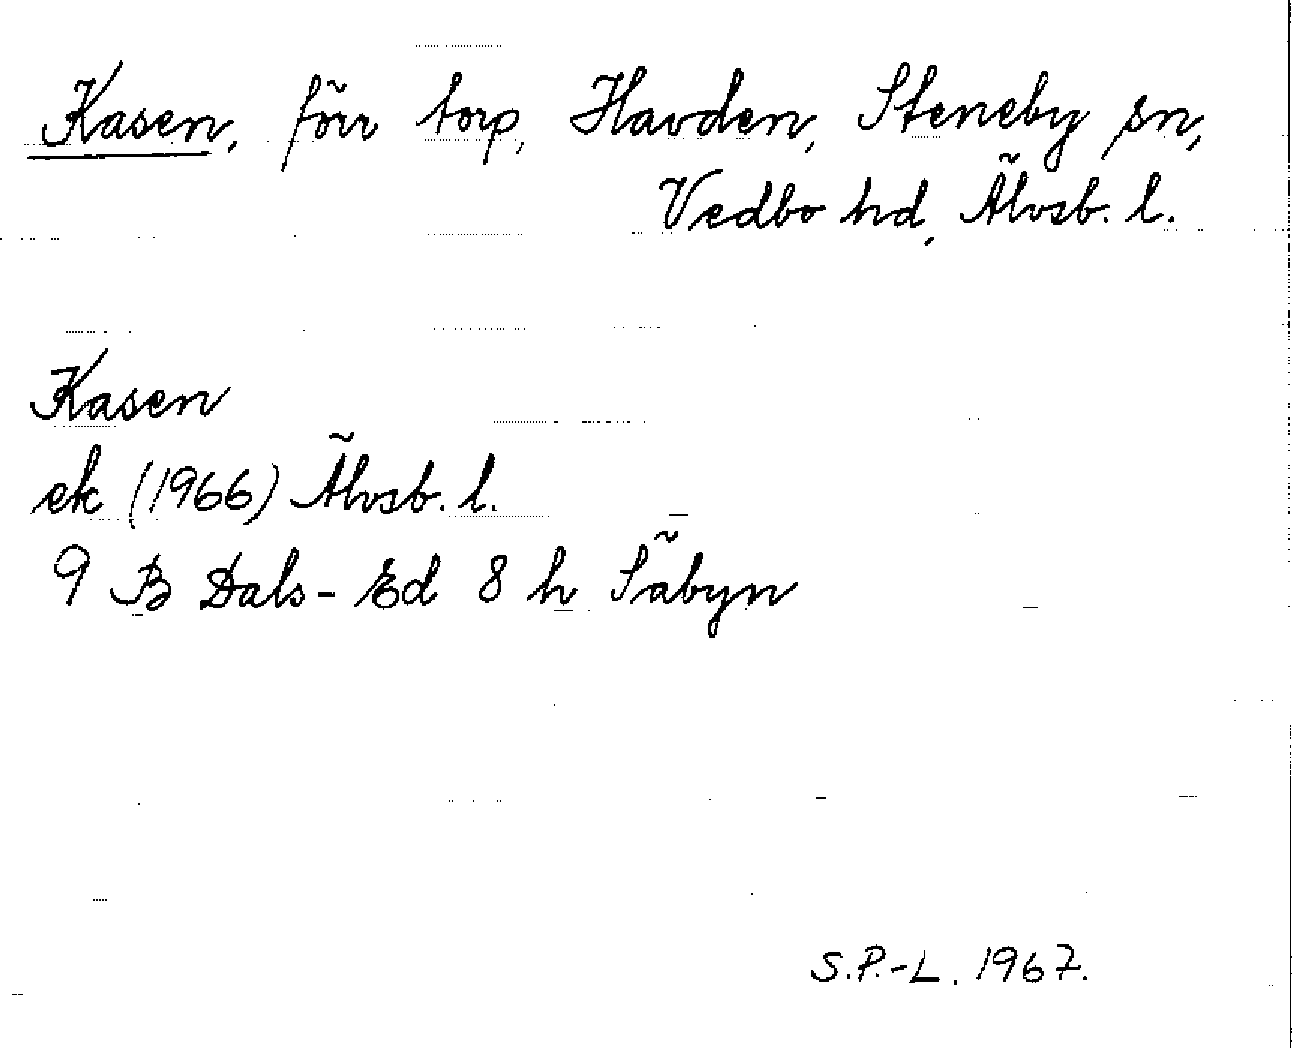 Kasen, förr torp, Havden, Steneby sn,
Vedbo hd, Älvsb. l.
Kasen
ek (1966) Älvsb. l.
9 B Dals-Ed 8 h Säbyn
S.P.-L. 1967.